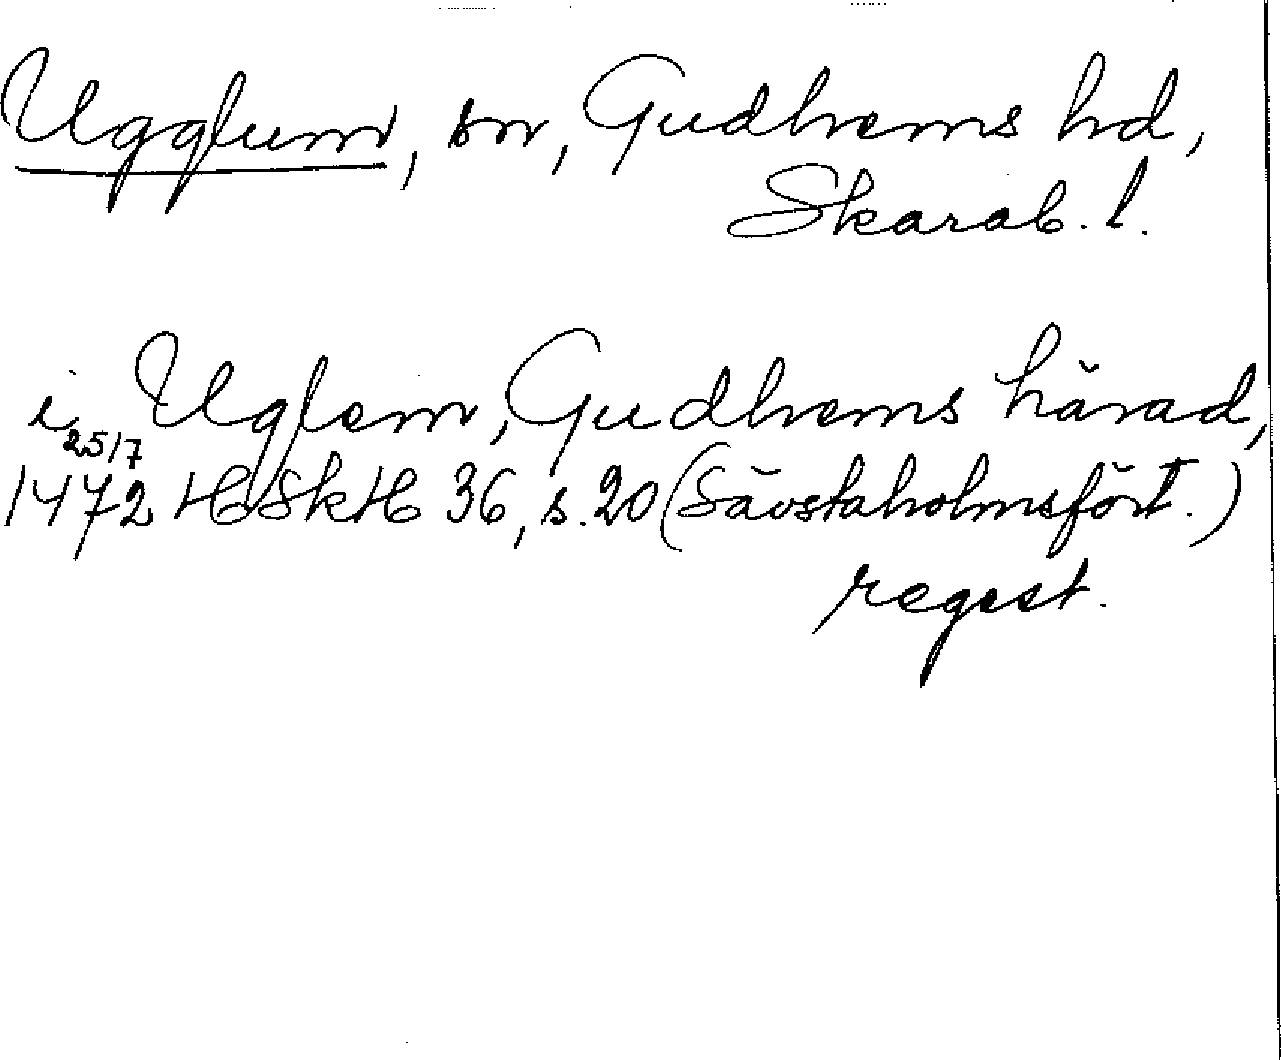 Ugglum, sn, Gudhems hd,
Skarab. l.
i Uglem, Gudhems härad,
25/7
1472 HSkH 36, s. 20 (Sävstaholmsfört.)
regest.